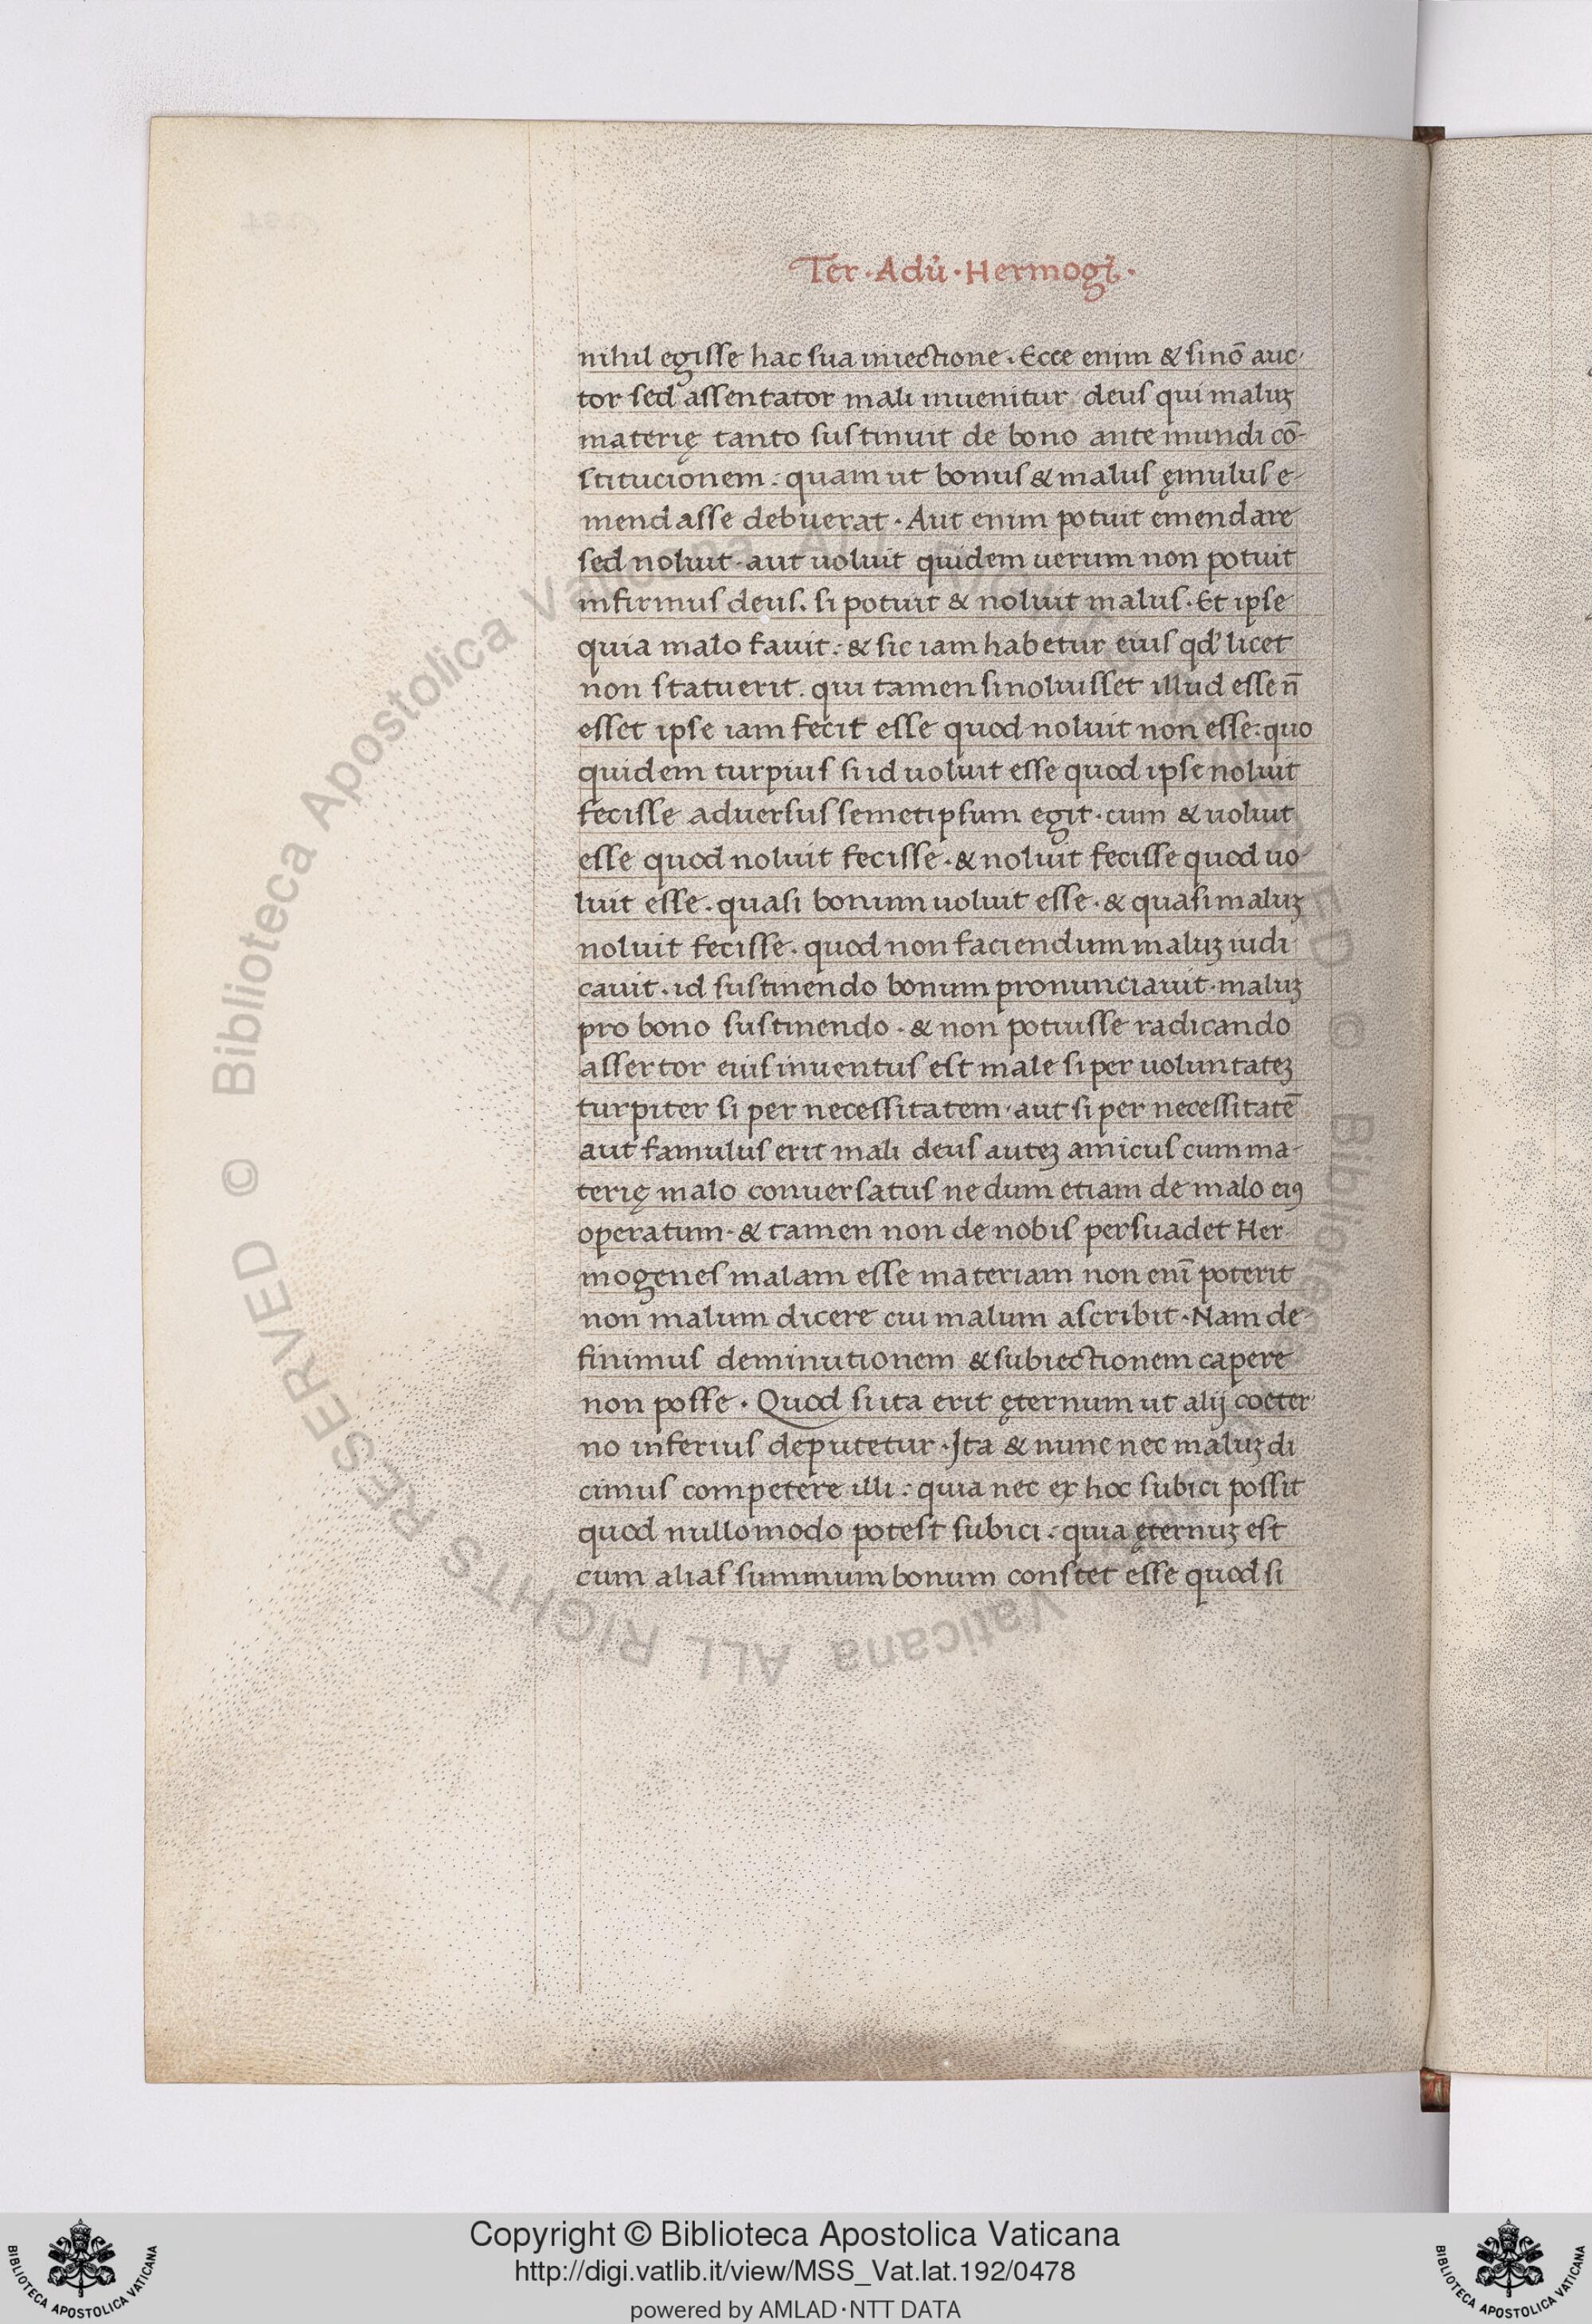 Ter · Adū · Hermogī ·
nihil egisse hac sua iniectione · Ecce enim & si nō auc-
tor sed assentator mali inuenitur deus qui maluꝫ
materię tanto sustinuit de bono ante mundi cō-
stitucionem : quam ut bonus & malus ęmulus e-
mendasse debuerat · Aut enim potuit emendare
sed noluit · aut uoluit quidem uerum non potuit
infirmus deus . si potuit & noluit malus · Et ipse
quia malo fauit : & sic iam habetur eius qd' licet
non statuerit . qui tamen si noluisset illud esse n̄
esset ipse iam fecit esse quod noluit non esse : quo
quidem turpius si id uoluit esse quod ipse noluit
fecisse aduersus semetipsum egit · cum & uoluit
esse quod noluit fecisse · & noluit fecisse quod uo-
luit esse . quasi bonum uoluit esse · & quasi maluꝫ
noluit fecisse . quod non faciendum maluꝫ iudi
cauit . id sustinendo bonum pronunciauit · maluꝫ
pro bono sustinendo · & non potuisse radicando
assertor eius inuentus est male si per uoluntateꝫ
turpiter si per necessitatem · aut si per necessitatē
aut famulus erit mali deus auteꝫ amicus cum ma-
terię malo conuersatus ne dum etiam de malo eiꝰ
operatum · & tamen non de nobis persuadet Her-
mogenes malam esse materiam non enī poterit
non malum dicere cui malum ascribit · Nam de-
finimus deminutionem & subiectionem capere
non posse · Quod si ita erit ęternum ut alij coeter
no inferius deputetur · Ita & nunc nec maluꝫ di
cimus competere illi : quia nec ex hoc subici possit
quod nullo modo potest subici : quia ęternuꝫ est
cum alias summum bonum constet esse quod si
© Biblioteca Apostolica Vaticana ALL RIGHTS RESERVED © Biblioteca Apostolica Vaticana ALL RIGHTS RESERVED
Copyright © Biblioteca Apostolica Vaticana
http://digi.vatlib.it/view/MSS_Vat.lat.192/0478
powered by AMLAD·NTT DATA
BIBLIOTECA APOSTOLICA VATICANA
BIBLIOTECA APOSTOLICA VATICANA